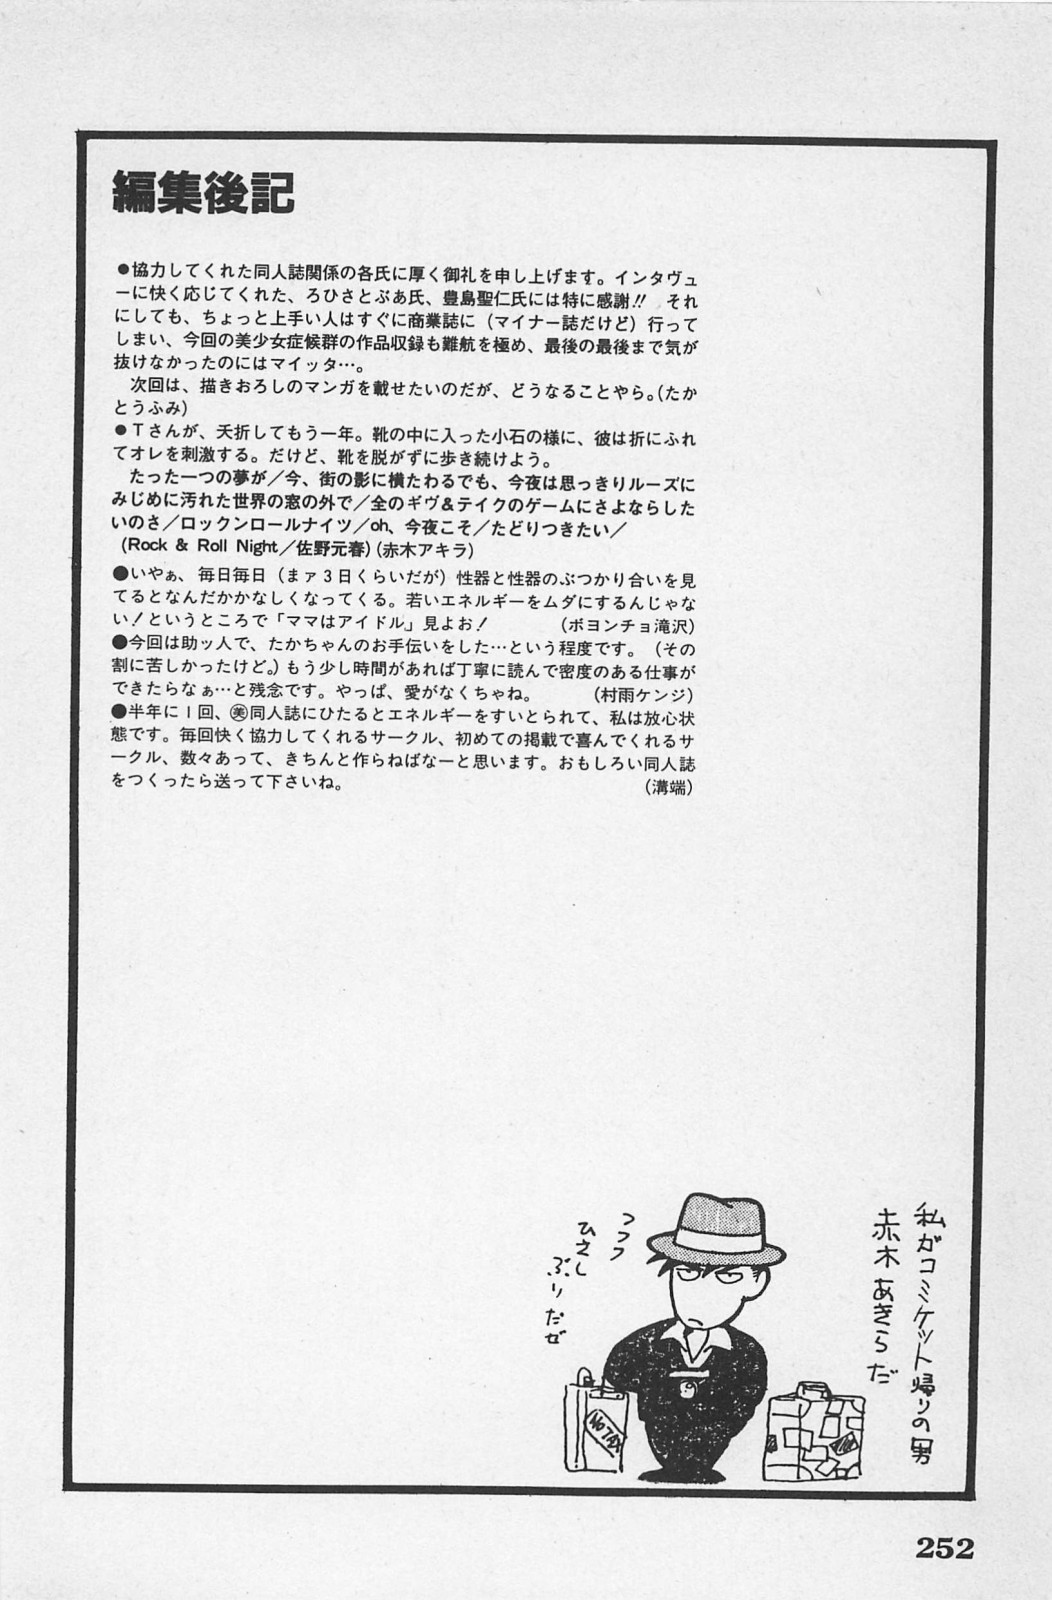 編集後記
●協力してくれた同人誌関係の各氏に厚く御礼を申し上げます。インタヴュ
ーに快く応じてくれた、ろひさとぶあ氏、豊島聖仁氏には特に感謝!! それ
にしても、ちょっと上手い人はすぐに商業誌に（マイナー誌だけど）行って
しまい、今回の美少女症候群の作品収録も難航を極め、最後の最後まで気が
抜けなかったのにはマイッタ…。
　次回は、描きおろしのマンガを載せたいのだが、どうなることやら。（たか
とうふみ）
●Ｔさんが、夭折してもう一年。靴の中に入った小石の様に、彼は折にふれ
てオレを刺激する。だけど、靴を脱がずに歩き続けよう。
　たった一つの夢が／今、街の影に横たわるでも、今夜は思っきりルーズに
みじめに汚れた世界の窓の外で／全のギヴ＆テイクのゲームにさよならした
いのさ／ロックンロールナイツ／oh、今夜こそ／たどりつきたい／
（Rock & Roll Night／佐野元春）（赤木アキラ）
●いやぁ、毎日毎日（まァ３日くらいだが）性器と性器のぶつかり合いを見
てるとなんだかかなしくなってくる。若いエネルギーをムダにするんじゃな
い！というところで「ママはアイドル」見よお！　（ボヨンチョ滝沢）
●今回は助ッ人で、たかちゃんのお手伝いをした…という程度です。（その
割に苦しかったけど。）もう少し時間があれば丁寧に読んで密度のある仕事が
できたらなぁ…と残念です。やっぱ、愛がなくちゃね。　（村雨ケンジ）
●半年に１回、㊎同人誌にひたるとエネルギーをすいとられて、私は放心状
態です。毎回快く協力してくれるサークル、初めての掲載で喜んでくれるサ
ークル、数々あって、きちんと作らねばなーと思います。おもしろい同人誌
をつくったら送って下さいね。　（溝端）
私がコミケット帰りの男
赤木あきらだ
フフフ
ひさし
ぶり
だぜ
NO TAX
252